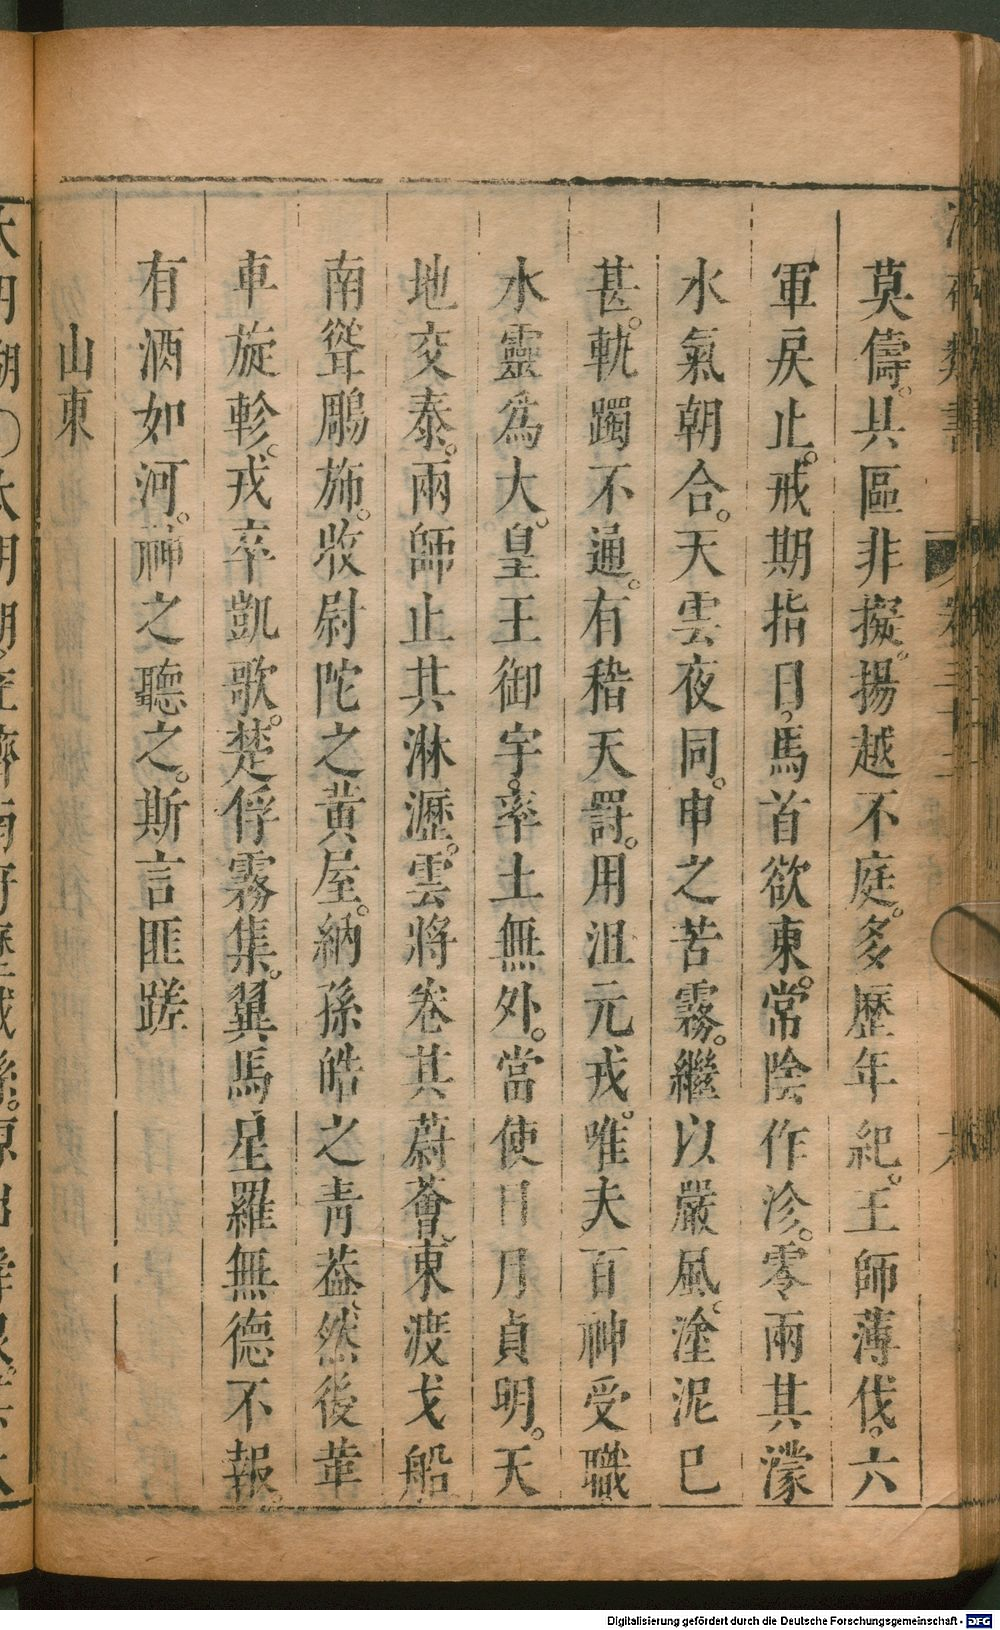 莫儔。具區非擬。揚越不庭。多歷年紀。王師薄伐。六
軍戾止。戒期指日。馬首欲東。常陰作沴。零雨其濛
水氣朝合。天雲夜同。申之苦霧。繼以嚴風。塗泥已
甚。軌躅不通。有稽天罰。用沮元戎。唯夫百神受職
水靈為大。皇王御宇。率土無外。當使日月貞明。天
地交泰。雨師止其淋瀝。雲將卷其蔚薈。東渡戈船
南聳鵰斾。收尉陀之黃屋。納孫皓之靑葢。然後華
車旋軫。戎卒凱歌。楚俘霧集。翼馬星羅無德不報。
有酒如河。神之聽之。斯言匪蹉
山東
Digitalisierung gefördert durch die Deutsche Forschungsgemeinschaft - DFG